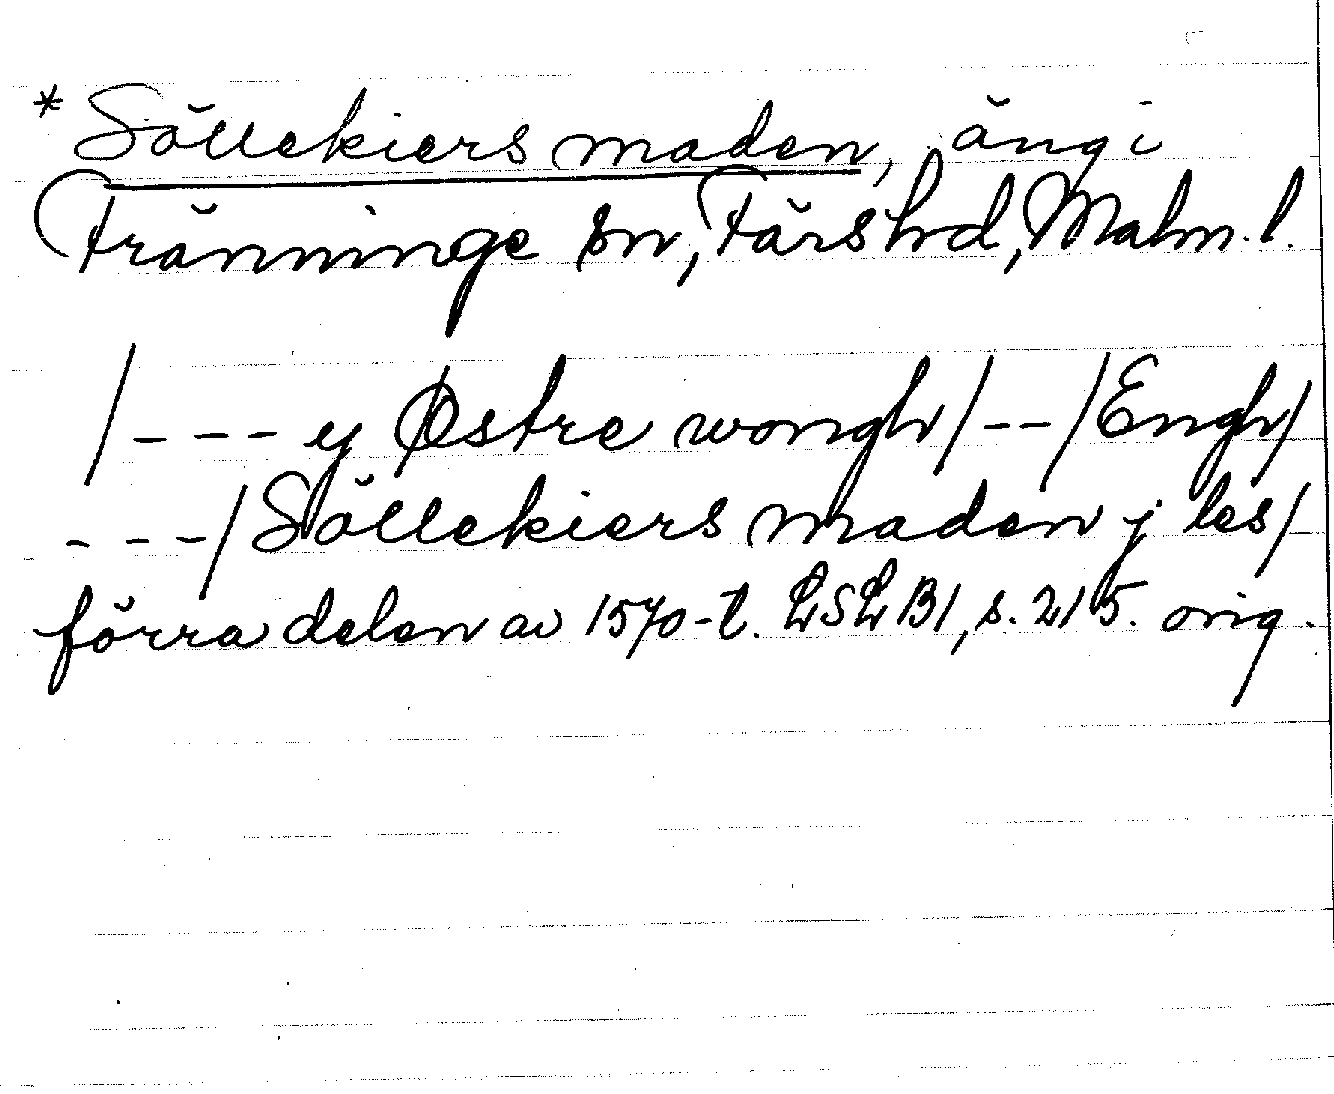 * Söllekiers maden, äng i
Tränninge sn, Färs hd, Malm. l.
/--- y Østre wongh/--/Engh/
---/Söllekiers maden j les/
förra delen av 1570-t. LSLB1, s. 215. orig.